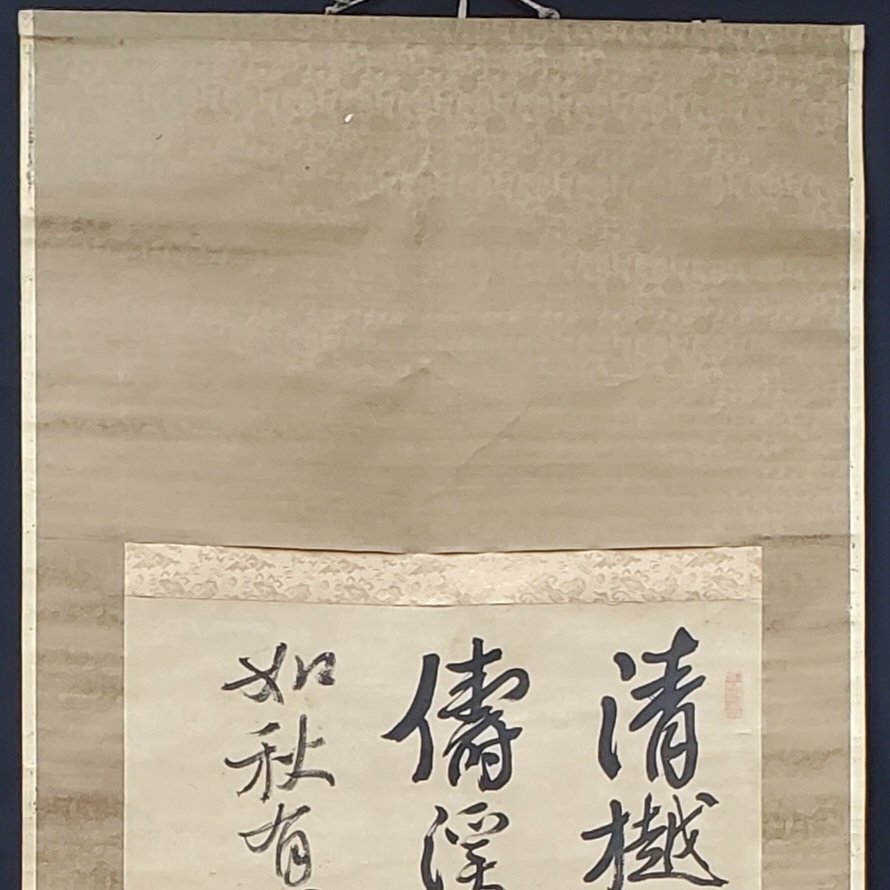 清樾
儔渓
如秋有